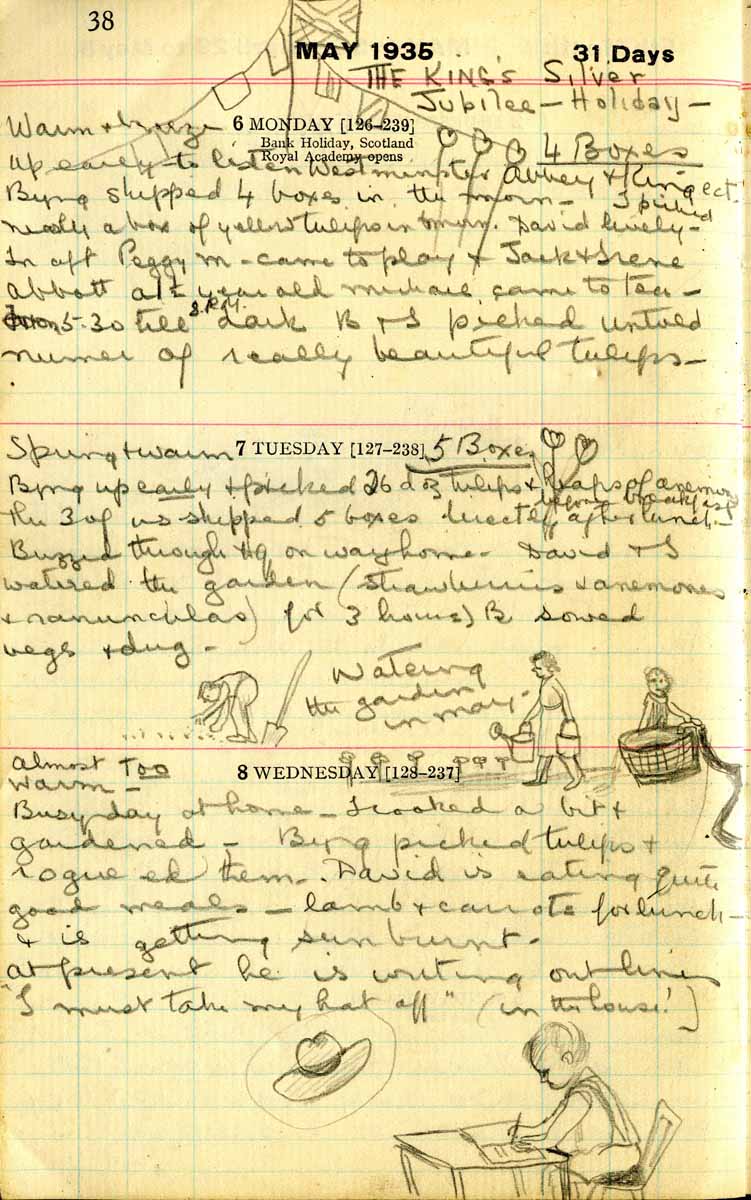 38
MAY 1935 31 Days
THE KING'S Silver
Jubilee - Holiday -
Warm & breeze 6 MONDAY [126-239]
Bank Holiday, Scotland
Royal Academy opens
4 Boxes
up early to listen Westminster Abbey & King ect.
Byng shipped 4 boxes in the morn - I picked
nearly a box of yellow tulips in morn. David lively -
In aft Peggy M - came to play & Jack & Irene
Abbott a 1½ year old Michael came to tea -
From 5.30 till 8.P.M. dark B & I picked untold
numer of really beautiful tulips -
Spring & warm 7 TUESDAY [127-238] 5 Boxes
Byng up early & picked 26 doz tulips & heaps of anemones
before breakfast
the 3 of us shipped 5 boxes directly after lunch -
Buzzed through HQ on way home - David & I
watered the garden (strawberries & anemones
& ranunclas) for 3 hours) B. sowed
vegs & dug -
Watering
the garden
in May -
Almost Too
warm - 8 WEDNESDAY [128-237]
Busy day at home - I cooked a bit &
gardened - Byng picked tulips &
rogue ed them - David is eating quite
good meals - lamb & carrots for lunch -
& is getting sunburnt -
At present he is writing out lines
"I must take my hat off" (in the house!)